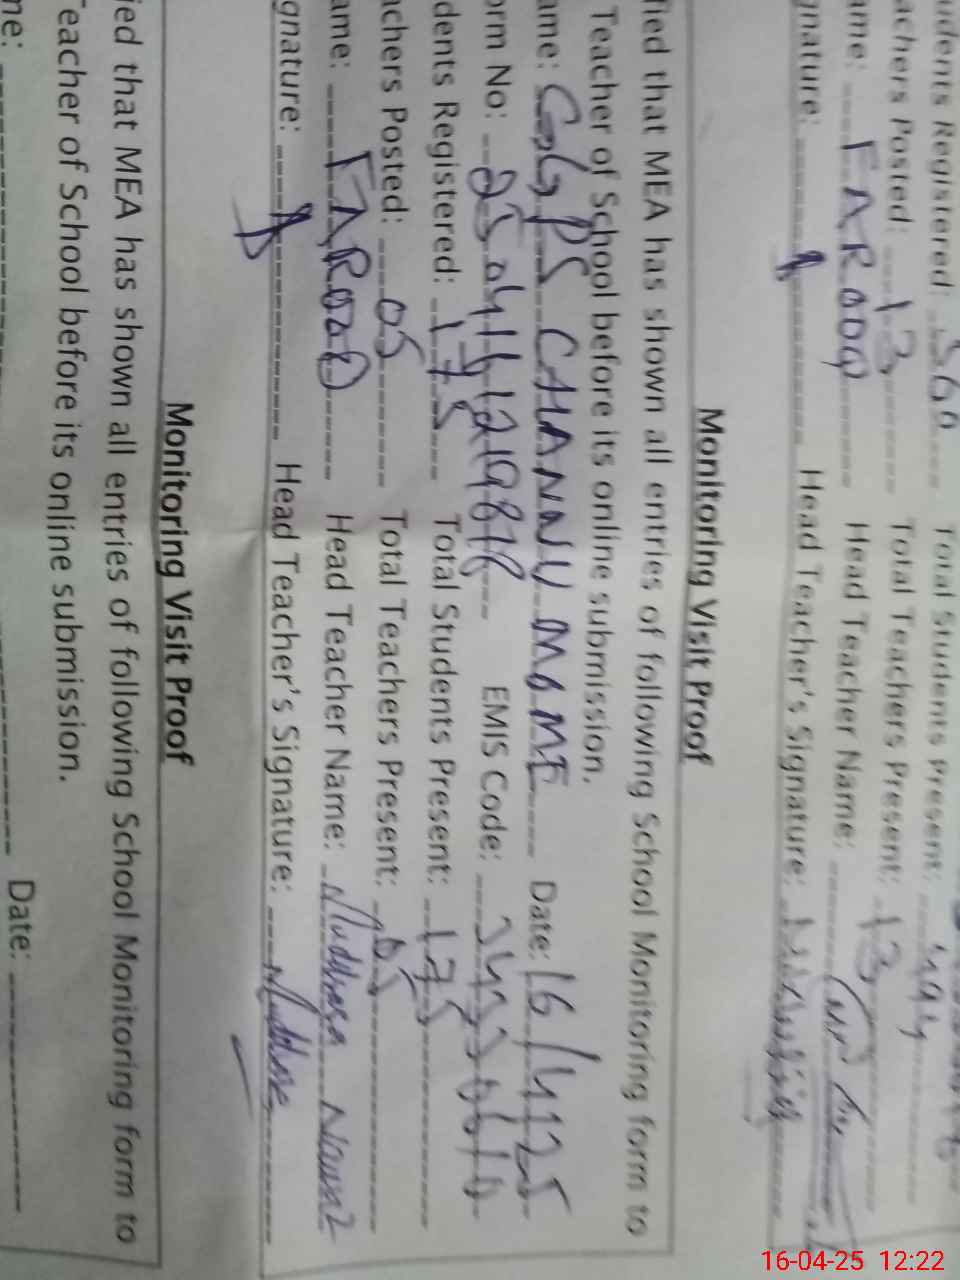 udents Registered: 360 Total Students Present:
achers Posted: 13 Total Teachers Present: 13
ame: FAROOQ Head Teacher Name:
gnature: Head Teacher's Signature:
Monitoring Visit Proof
fied that MEA has shown all entries of following School Monitoring form to
Teacher of School before its online submission.
ame: GGPS CHANNU MOME Date: 16/4/25
orm No: EMIS Code:
dents Registered: 175 Total Students Present: 175
achers Posted: 05 Total Teachers Present: 05
ame: FAROOQ Head Teacher Name:
gnature: Head Teacher's Signature:
Monitoring Visit Proof
ied that MEA has shown all entries of following School Monitoring form to
Teacher of School before its online submission.
me: Date:
16-04-25 12:22